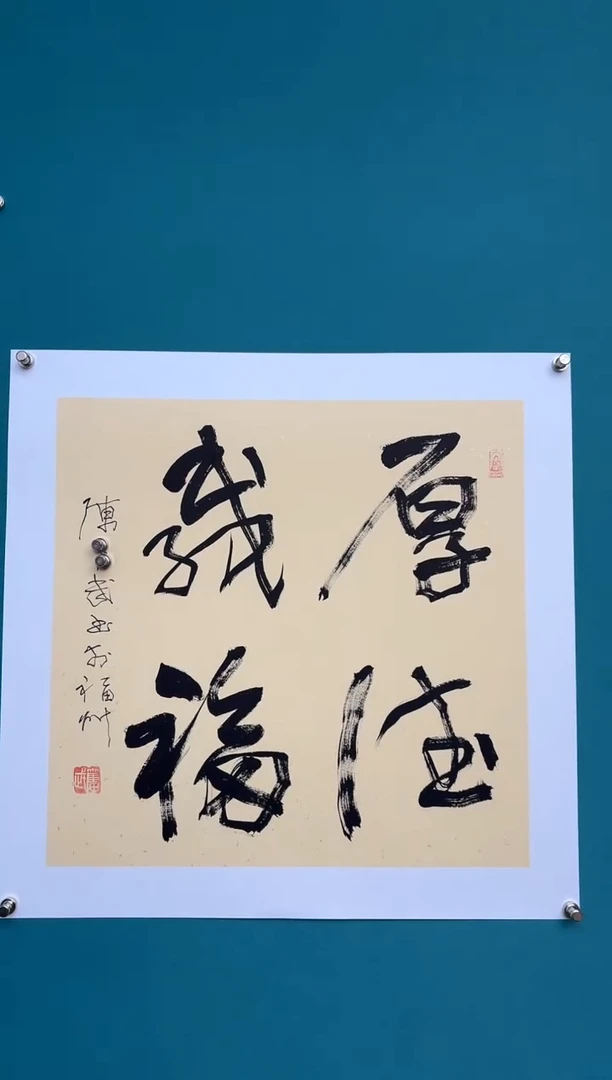 厚德
载福
陈武书于福州